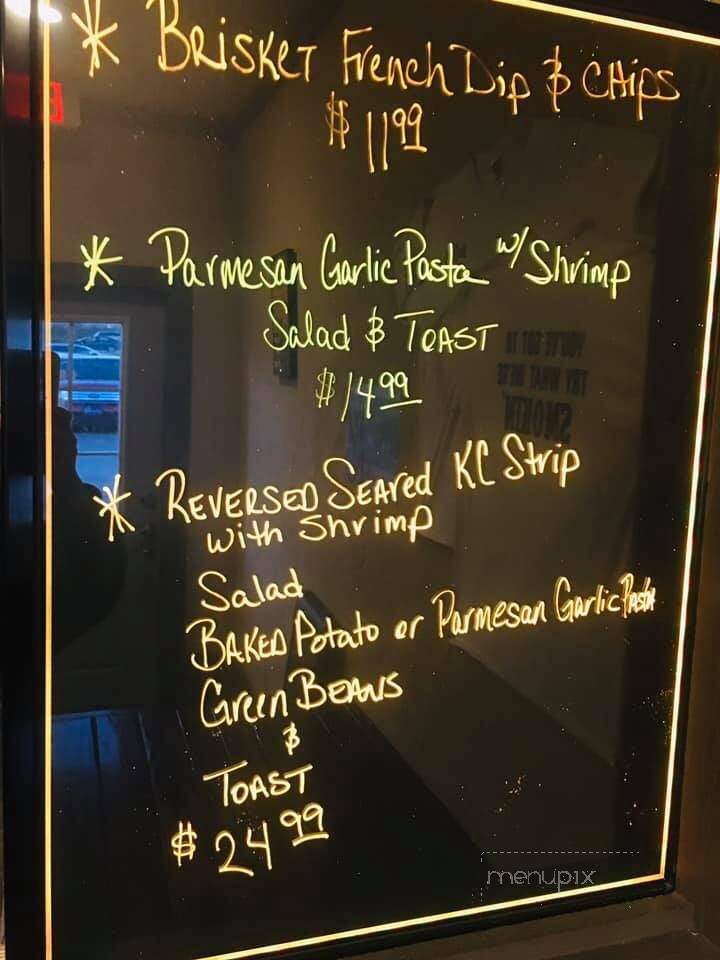 * BRISKET French Dip & CHips
$ 11 99
* Parmesan Garlic Pasta w/ Shrimp
Salad & TOAST
$ 14 99
* REVERSED SEARed KC Strip
with Shrimp
Salad
BAKED Potato or Parmesan Garlic Pasta
Green BEANS
&
TOAST
$ 24 99
YOU'VE GOT TO
TRY WHAT WE'RE
SMOKIN'
menupix